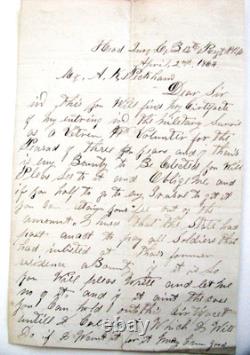 Head Qurs Co B 12th Regt
April 2nd 1864
Mr. A. Peckham
Dear Sir
in this you Will find my Certificate
of my entring in the military Service
as a Vetren Volunteer for the
Peariod of three years and there
is my Bounty to Be Colected for Will you
Pleas See to it and Oblige me and
if you half to go to any trouble to get it
you can out of the
amount. I hear that the State has
past an act to pay all Soldiers that
had inlisted at there former
residence a Bounty if it is So
you Will pleas Write and let me
no of it and if it aint the case
you can hold onto
untill I Call Which I Will
do if I Want it for it may Come good